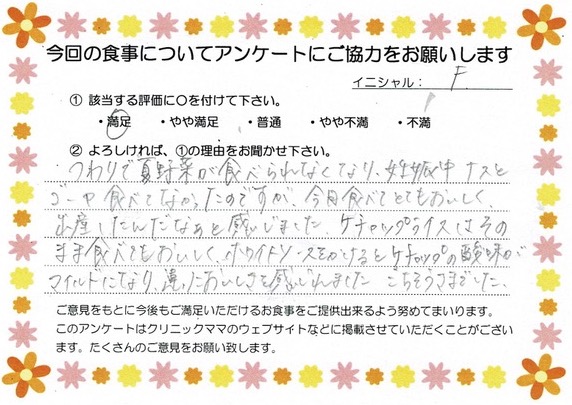 今回の食事についてアンケートにご協力をお願いします
イニシャル： F.
① 該当する評価に○を付けて下さい。
・満足 ・やや満足 ・普通 ・やや不満 ・不満
② よろしければ、①の理由をお聞かせ下さい。
つわりで夏野菜が食べられなくなり、妊娠中ナスと
ゴーヤ食べてなかったのですが、今日食べてとてもおいしく、
出産したんだなぁと感じました。ケチャップライスはその
まま食べてもおいしく、ホワイトソースをかけるとケチャップの酸味が
マイルドになり、違ったおいしさを感じれました ごちそうさまでした。
ご意見をもとに今後もご満足いただけるお食事をご提供出来るよう努めてまいります。
このアンケートはクリニックママのウェブサイトなどに掲載させていただくことがござい
ます。たくさんのご意見をお願い致します。